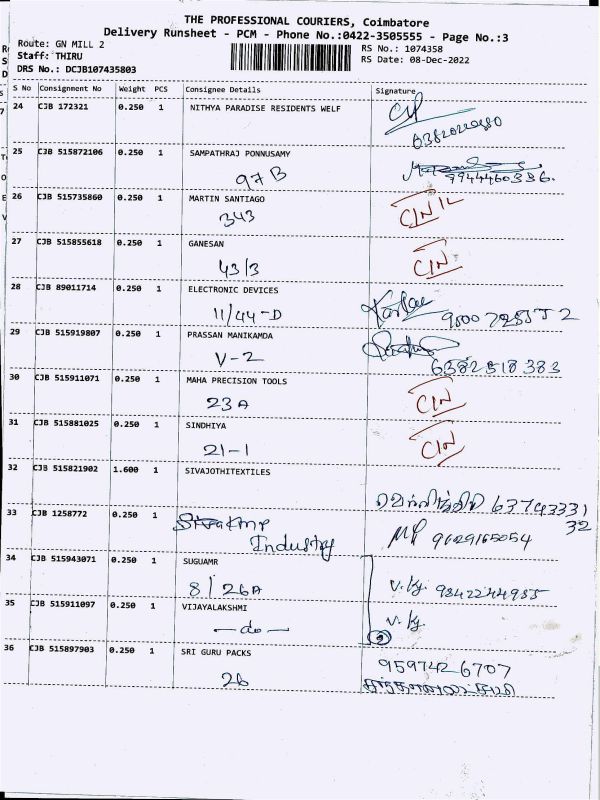 THE PROFESSIONAL COURIERS, Coimbatore
Delivery Runsheet - PCM - Phone No.:0422-3505555 - Page No.:3
Route: GN MILL 2
RS No.: 1074358
Staff: THIRU
RS Date: 08-Dec-2022
DRS No.: DCJB107435803
S No Consignment No Weight PCS Consignee Details Signature
24 CJB 172321 0.250 1 NITHYA PARADISE RESIDENTS WELF
25 CJB 515872106 0.250 1 SAMPATHRAJ PONNUSAMY
97 B
9944460336.
26 CJB 515735860 0.250 1 MARTIN SANTIAGO
343
27 CJB 515855618 0.250 1 GANESAN
43/3
28 CJB 89011714 0.250 1 ELECTRONIC DEVICES
11/44-D
29 CJB 515919807 0.250 1 PRASSAN MANIKAMDA
V-2
6382518383
30 CJB 515911071 0.250 1 MAHA PRECISION TOOLS
23A
31 CJB 515881025 0.250 1 SINDHIYA
21-1
32 CJB 515821902 1.600 1 SIVAJOTHITEXTILES
6374333132
33 CJB 1258772 0.250 1
Industry
9629165054
34 CJB 515943071 0.250 1 SUGUAMR
8/26A
V. Ky. 9842244955
35 CJB 515911097 0.250 1 VIJAYALAKSHMI
-do-
V. Ky.
36 CJB 515897903 0.250 1 SRI GURU PACKS
26
9597426707